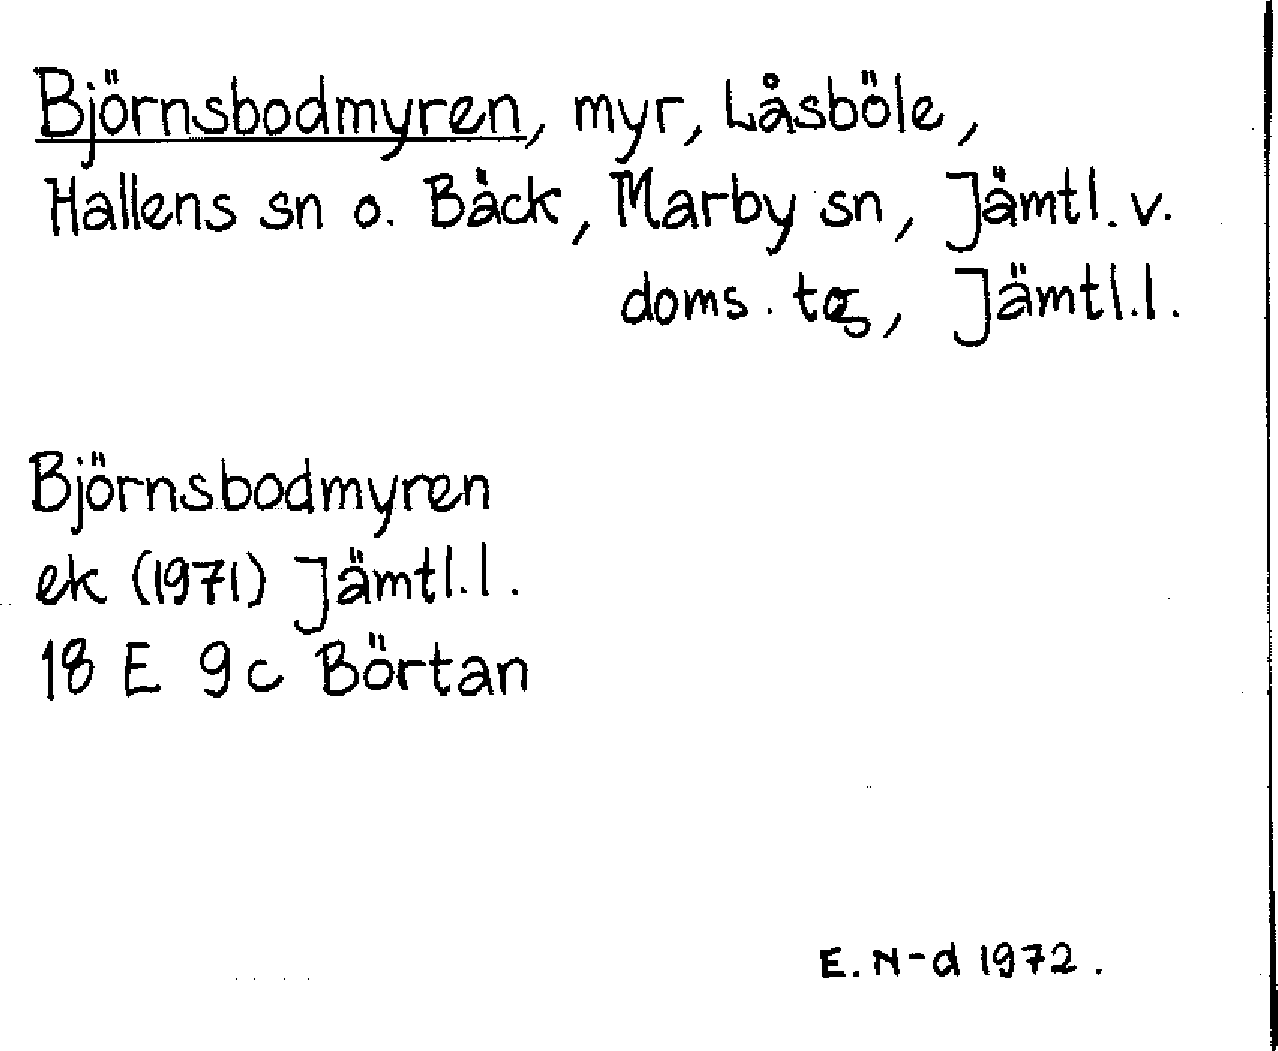 Björnsbodmyren, myr, Låsböle,
Hallens sn o. Bäck, Marby sn, Jämtl. v.
doms. tg, Jämtl.l.
Björnsbodmyren
ek (1971) Jämtl.l.
18 E 9c Börtan
E. N-d 1972.